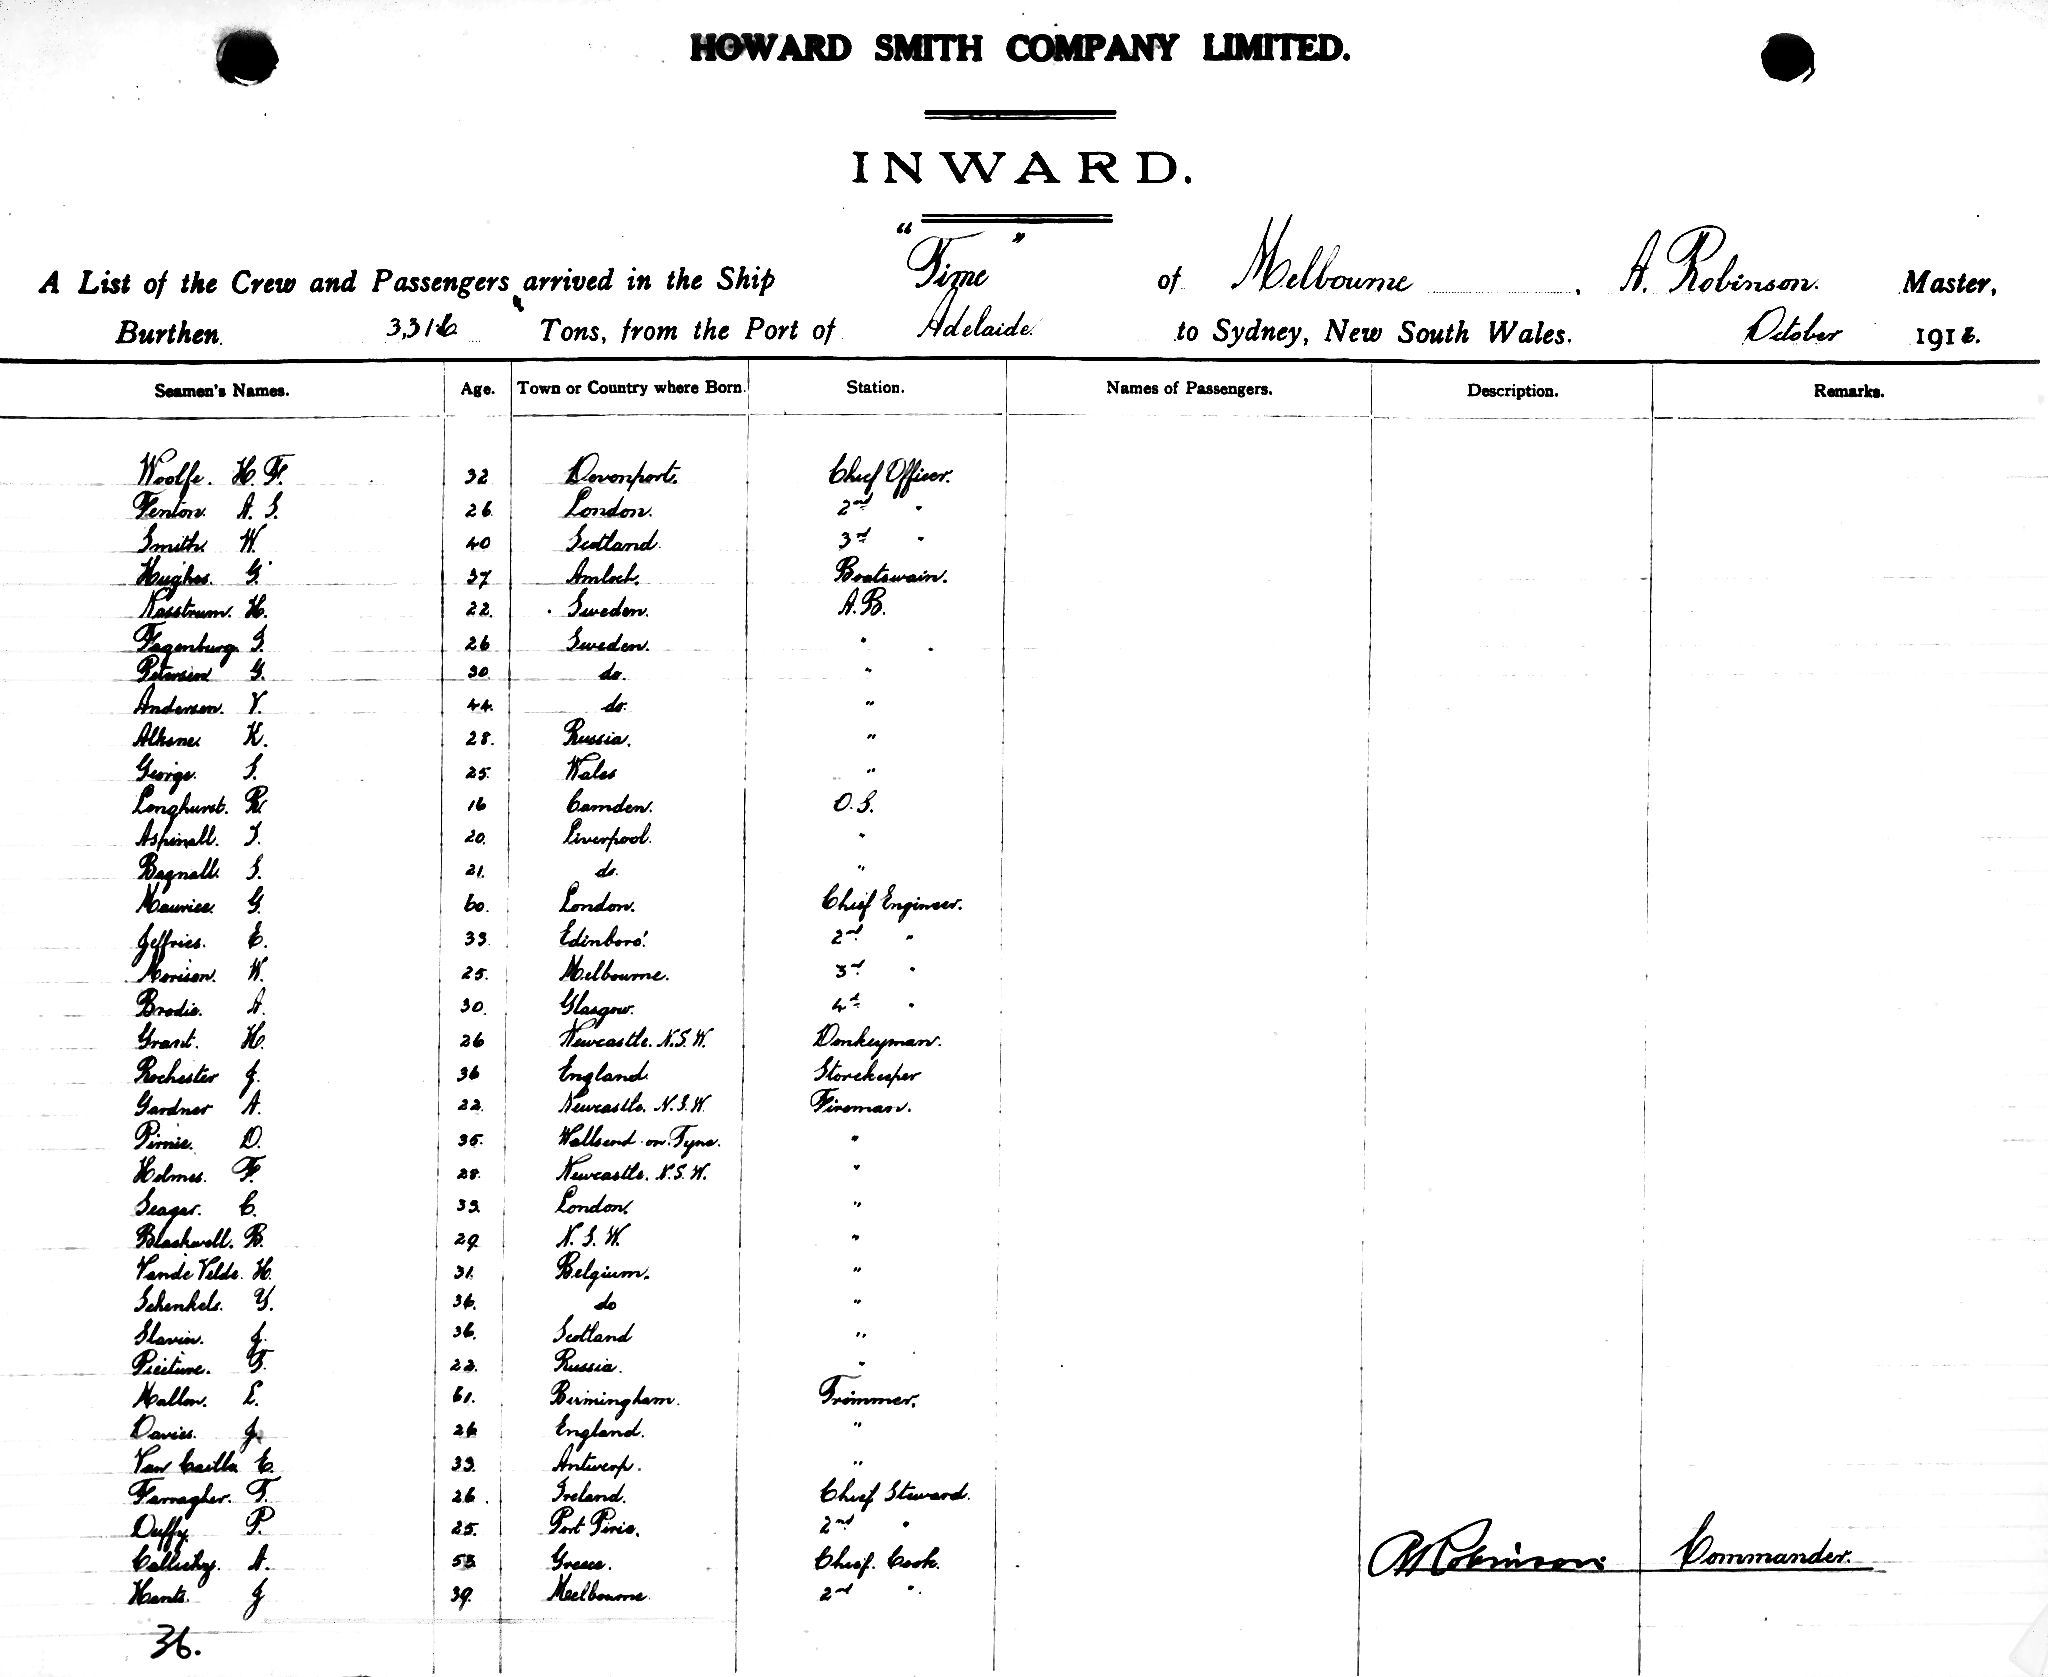 HOWARD SMITH COMPANY LIMITED.
INWARD.
A List of the Crew and Passengers arrived in the Ship "Time" of Melbourne, A. Robinson. Master,
Burthen 3,316 Tons, from the Port of Adelaide to Sydney, New South Wales. October 1916.
Seamen's Names. Age. Town or Country where Born. Station. Names of Passengers. Description. Remarks.
Woolfe. H. F. 32 Devonport. Chief Officer.
Fenton. A. S. 26 London. 2nd "
Smith. W. 40 Scotland. 3rd "
Hughes. G. 37 Amloch. Boatswain.
Nasstrum. H. 22. Sweden. A.B.
Fagenburg. S. 26 Sweden. "
Petersen G. 30 do. "
Andersen. V. 44. do. "
Alksne. K. 28. Russia. "
George. S. 25. Wales "
Longhurst. R. 16 Camden. O.S.
Aspinall. T. 20. Liverpool. "
Bagnall. S. 21. do. "
Maurice. G. 60. London. Chief Engineer.
Jeffries. E. 33. Edinboro'. 2nd "
Morison. W. 25. Melbourne. 3rd "
Brodie. A. 30. Glasgow. 4th "
Grant. H. 26 Newcastle. N.S.W. Donkeyman.
Rochester J. 36 England. Storekeeper
Gardner A. 22. Newcastle. N.S.W. Fireman.
Pirnie. D. 35. Wallsend on Tyne. "
Holmes. F. 28. Newcastle. N.S.W. "
Seager. C. 33. London. "
Blackwell. B. 29 N.S.W. "
Vande Velde. H. 31. Belgium. "
Schenkels. Y. 36. do "
Slavin. J. 36. Scotland "
F. 22. Russia. "
Mallon. E. 61. Birmingham. Trimmer.
Davies. J. 26 England. "
Van Cailla E. 33. Antwerp. "
Farragher. T. 26. Ireland. Chief Steward.
Duffy. P. 25. Port Pirie. 2nd "
A. 53. Greece. Chief. Cook.
J 39. Melbourne. 2nd "
A Robinson. Commander.
36.